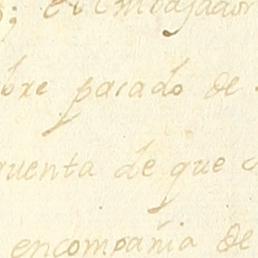 el Embajador
bre pacado de
quenta de que
encompañia de